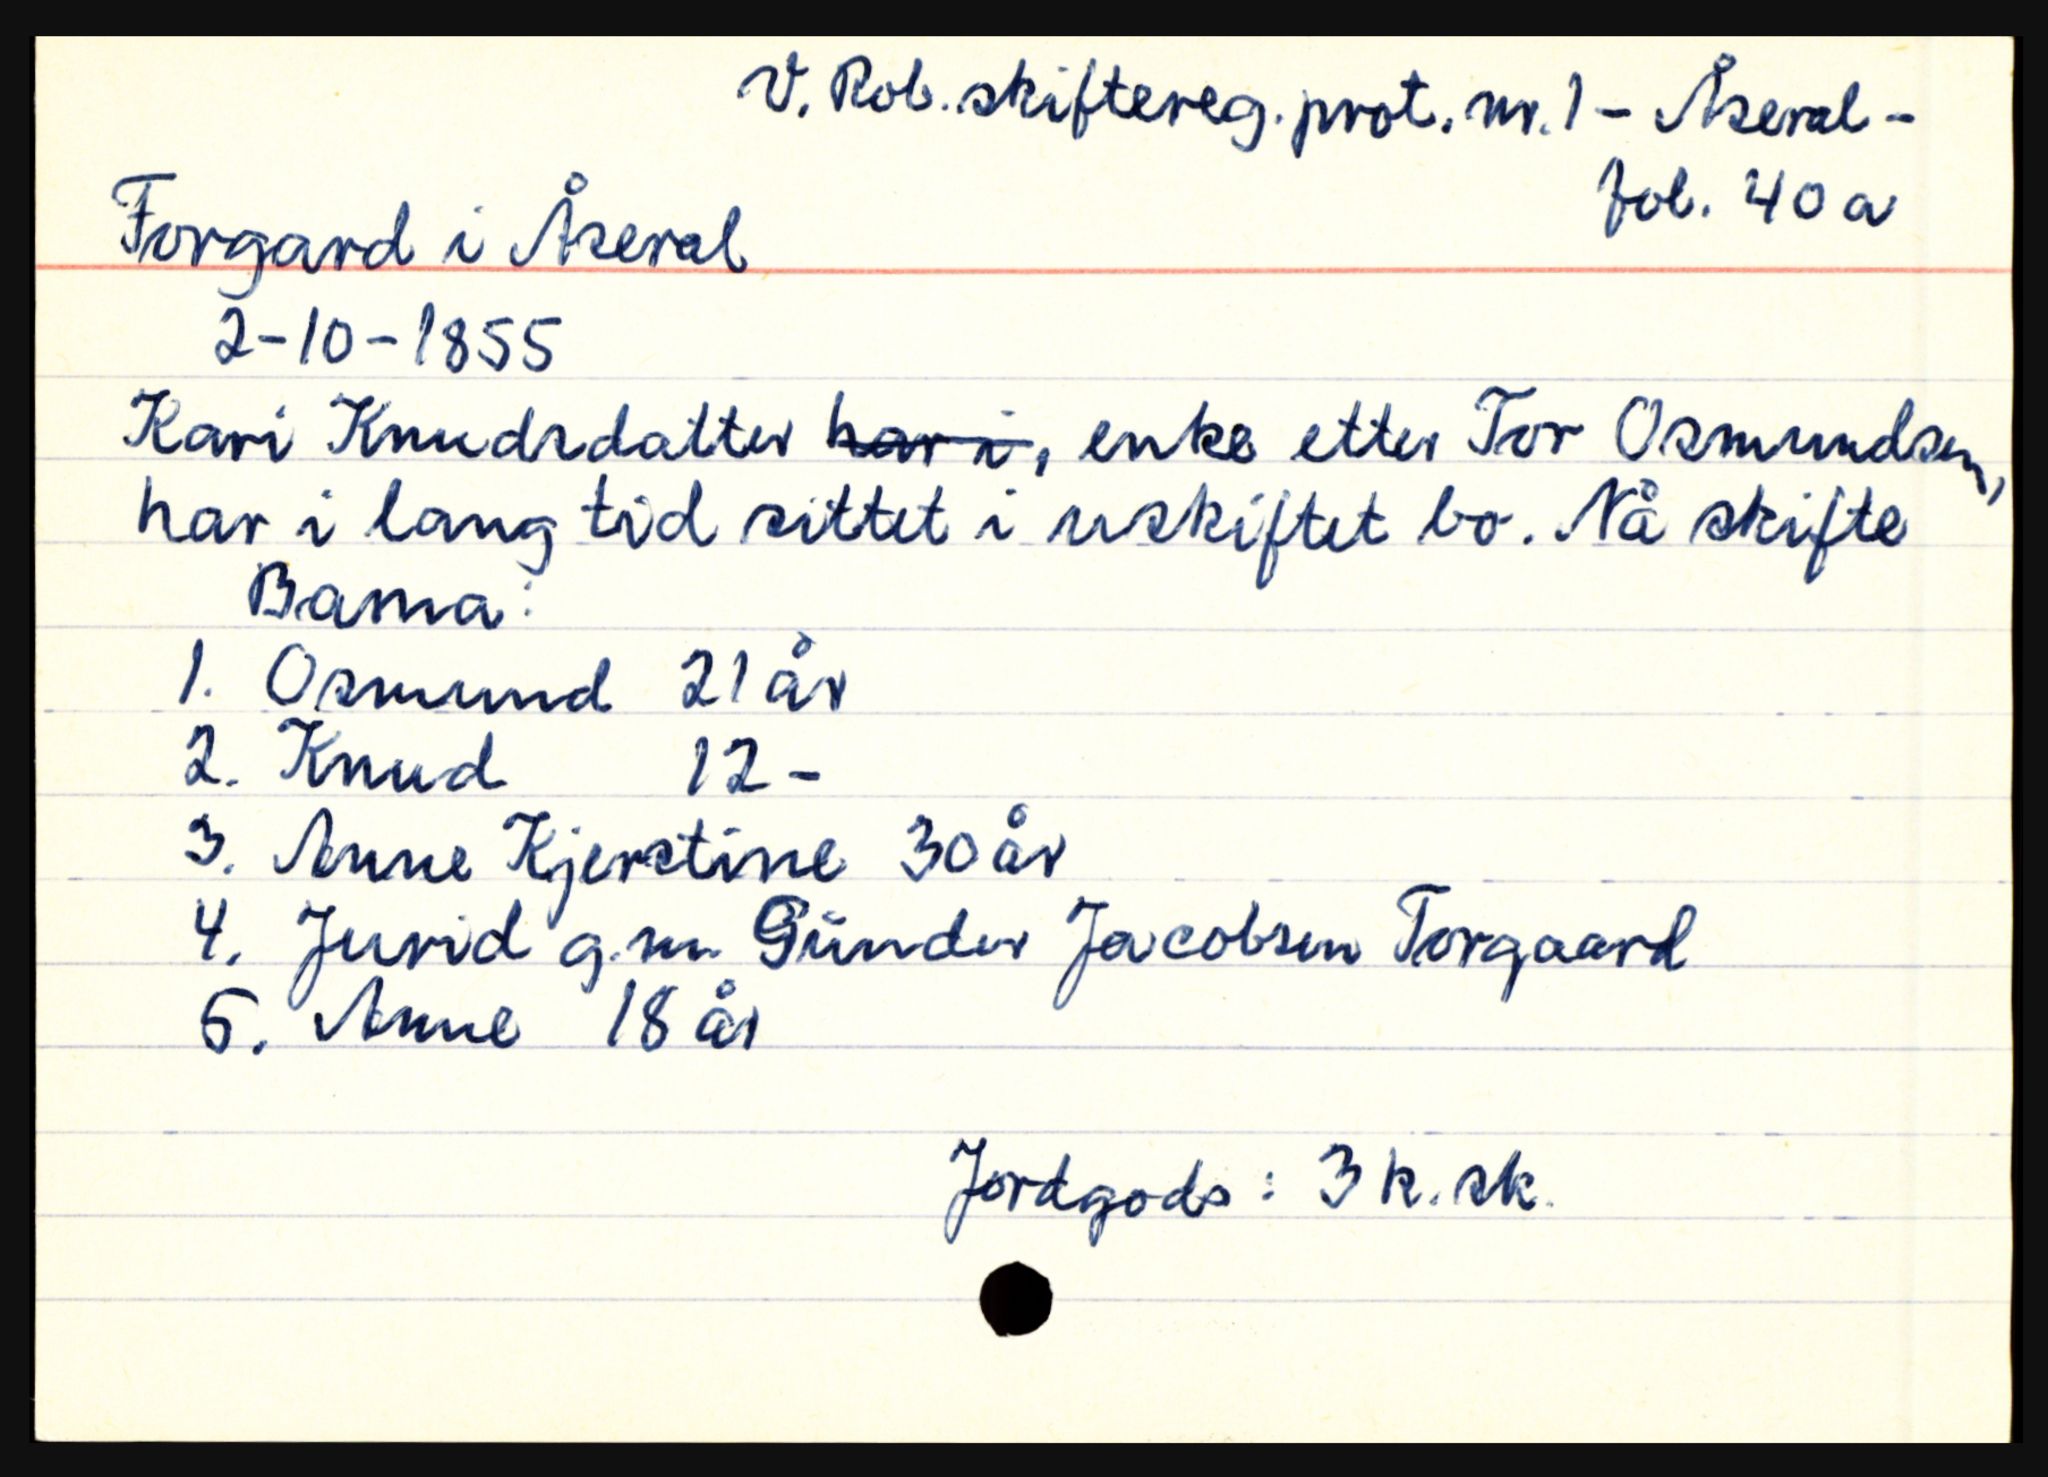 V. Rob. skiftereg. prot. nr. 1 - Åseral -
fol. 40 a
Forgard i Åseral
2-10-1855
Kari Knudsdatter har i, enke etter Tor Osmundsen,
har i lang tid sittet i uskiftet bo. Nå skifte
Barna:
1. Osmund 21 år
2. Knud 12 -
3. Anne Kjerstine 30 år
4. Jurid g. m. Günder Jacobsen Torgaard
5. Anne 18 år
Jordgods: 3 k. sk.